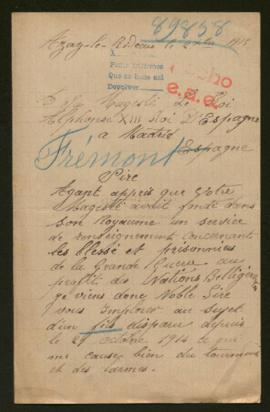 89858
Azay-le-Rideau le 1915
A
Petite Référence
Que se hate ami
Devolver
e.a.e.
Sa Majesté Le Roi
Alphonse XIII Roi D'Espagne
a Madrid
Espagne
Frémont
Sire
Ayant appris que Votre
Majesté avait fondé dans
son Royaume un service
de renseignement concernant
les blessé et prisonniers
de la Grande Guerre au
profit des Nations Belligérantes
je viens donc Noble Sire
vous Implorer au sujet
d'un fils disparu depuis
le 29 octobre 1914 ce qui
me cause bien du tourment
et des larmes.